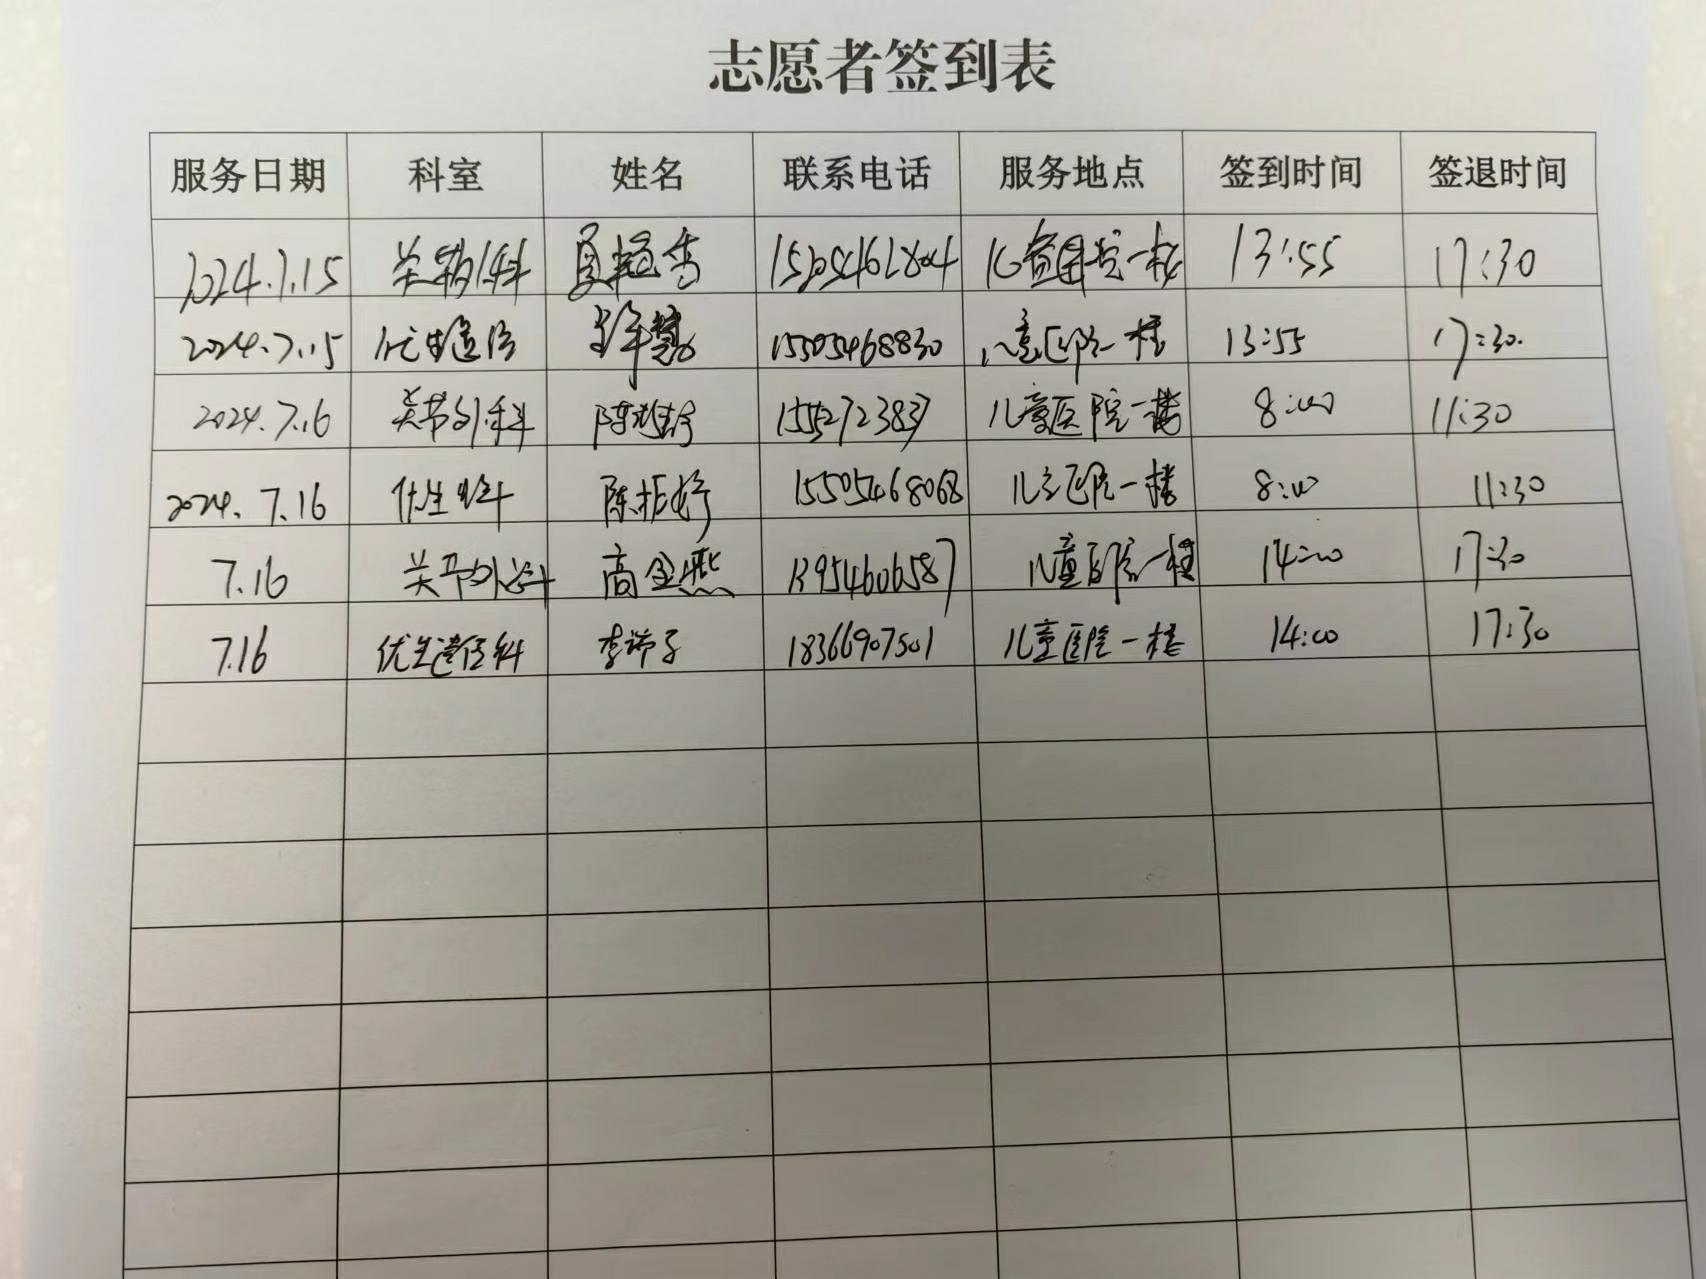 志愿者签到表
服务日期 科室 姓名 联系电话 服务地点 签到时间 签退时间
2024.7.15 关节外科 13:55 17:30
2024.7.15 优生遗传 15505468830 儿童医院一楼 13:55 17:30.
2024.7.16 关节外科 儿童医院一楼 8:00 11:30
2024.7.16 15505468068 儿童医院一楼 8:00 11:30
7.16 关节外科 高金燕 13954606587 儿童医院一楼 14:00 17:30
7.16 优生遗传科 18366907501 儿童医院一楼 14:00 17:30